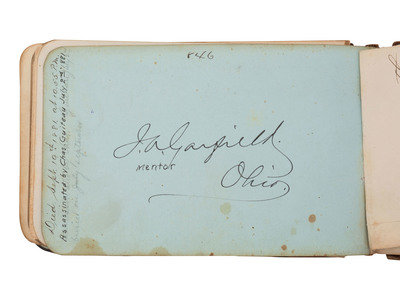 846
J.A. Garfield.
Mentor
Ohio,
Died Sept 19th 1881 at 10.35 P.M.
Assassinated by Chas. Guiteau July 2nd 1881